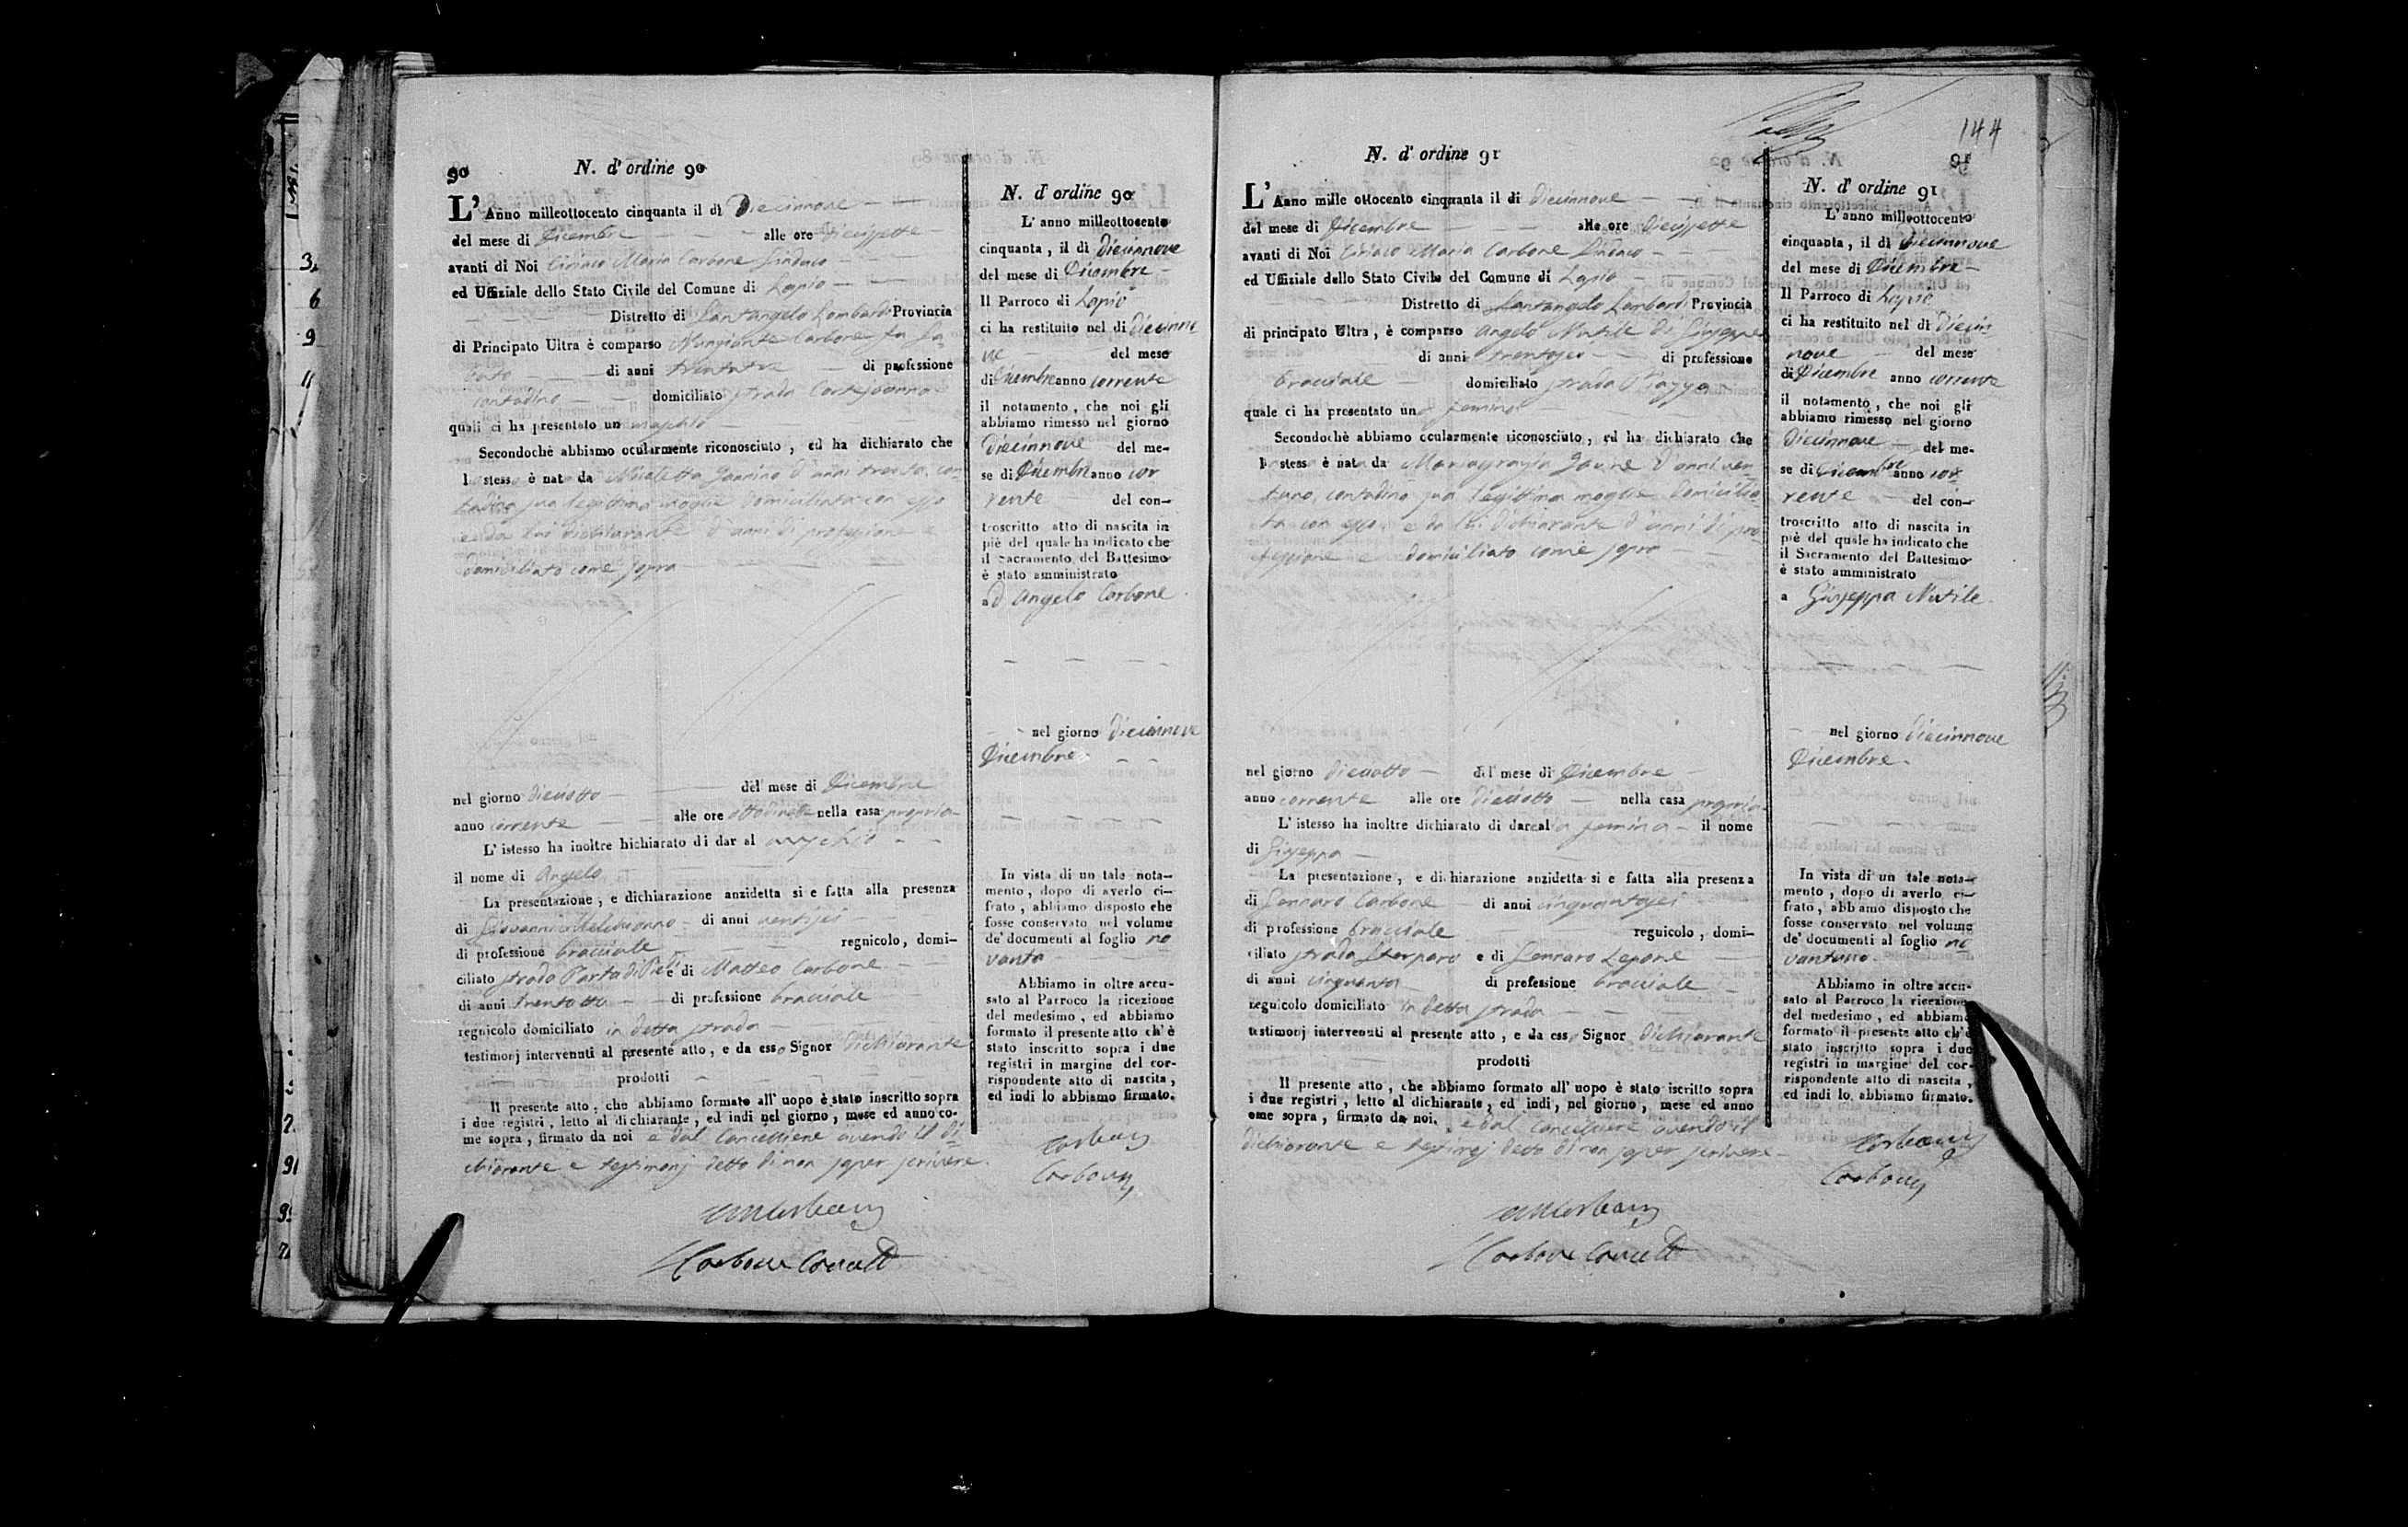 90
N. d' ordine 90
L' Anno milleottocento cinquanta il dì Diecinnove
del mese di Dicembre alle ore diecissette
avanti di Noi Ciriaco Maria Carbone Sindaco
ed Uffiziale dello Stato Civile del Comune di Lapio
Distretto di Santangelo Lombardi Provincia
di Principato Ultra è comparso Nunziante Carbone fu
di anni trentatre di professione
contadino domiciliato strada
quali ci ha presentato un maschio
Secondochè abbiamo ocularmente riconosciuto, ed ha dichiarato che
l stess è nat da Nicoletta Jannino d'anni trenta, con-
tadina sua legittima moglie domiciliata con esso
e da lui dichiarante d'anni di professione e
domiciliato come sopra
nel giorno dieciotto del mese di Dicembre
anno corrente alle ore nella casa propria
L' istesso ha inoltre hichiarato di dar al maschio
il nome di Angelo
La presentazione, e dichiarazione anzidetta si e fatta alla presenza
di Giovanni di anni ventisei
di professione bracciale regnicolo, domi-
ciliato strada e di Matteo Carbone
di anni trentotto di professione bracciale
regnicolo domiciliato in detta strada
testimonj intervenuti al presente atto, e da esso Signor dichiarante
prodotti
Il presente atto, che abbiamo formato all' uopo è stato inscritto sopra
i due registri, letto al dichiarante, ed indi nel giorno, mese ed anno co-
me sopra, firmato da noi e dal Cancelliere avendo il di-
chiarante e testimonj detto di non saper scrivere.
Carbone
N. d' ordine 90
L' anno milleottocento
cinquanta, il dì Diecinnove
del mese di Dicembre
Il Parroco di Lapio
ci ha restituito nel di diecinno
ve del mese
di Dicembre anno corrente
il notamento, che noi gli
abbiamo rimesso nel giorno
diecinnove del me-
se di Dicembre anno cor
rente del con-
troscritto atto di nascita in
piè del quale ha indicato che
il Sacramento del Battesimo
è stato amministrato
ad Angelo Carbone
nel giorno diecinnove
Dicembre
In vista di un tale nota-
mento, dopo di averlo ci-
frato, abbiamo disposto che
fosse conservato nel volume
de' documenti al foglio no
vanta
Abbiamo in oltre accu-
sato al Parroco la ricezione
del medesimo, ed abbiamo
formato il presente atto ch' è
stato inscritto sopra i due
registri in margine del cor-
rispondente atto di nascita,
ed indi lo abbiamo firmato.
Carbone
144
N. d' ordine 91
L' Anno mille ottocento cinquanta il di Diecinnove
del mese di Dicembre alle ore diecissette
avanti di Noi Ciriaco Maria Carbone Sindaco
ed Uffiziale dello Stato Civile del Comune di Lapio
Distretto di Santangelo Lombardi Provincia
di principato Ultra, è comparso Angelo Nutile di Giuseppe
di anni trentasei di professione
bracciale domiciliato strada Piazza
quale ci ha presentato una femina
Secondochè abbiamo ocularmente riconosciuto, ed ha dichiarato che
l stess è nat da Mariagrazia d'anni ven-
tuno, contadina sua legittima moglie domicilia-
ta con esso e da lui dichiarante d'anni di pro-
fessione e domiciliato come sopra
nel giorno dieciotto del mese di Dicembre
anno corrente alle ore dieciotto nella casa propria
L' istesso ha inoltre dichiarato di dareala femina il nome
di Giuseppa
La presentazione, e dichiarazione anzidetta si e fatta alla presenza
di Gennaro Carbone di anni cinquantasei
di professione bracciale regnicolo, domi-
ciliato strada e di Gennaro Lepore
di anni cinquanta di professione bracciale
regnicolo domiciliato in detta strada
testimonj intervenuti al presente atto, e da esso Signor dichiarante
prodotti
Il presente atto, che abbiamo formato all' uopo è stato iscritto sopra
i due registri, letto al dichiarante, ed indi, nel giorno, mese ed anno
ome sopra, firmato da noi. e dal Cancelliere avendo il
dichiarante e testimoj detto di non saper scrivere
Carbone
N. d' ordine 91
L' anno milleottocento
cinquanta, il dì diecinnove
del mese di Dicembre
Il Parroco di Lapio
ci ha restituito nel di diecin-
nove del mese
di Dicembre anno corrente
il notamento, che noi gli
abbiamo rimesso nel giorno
diecinnove del me-
se di Dicembre anno cor-
rente del con-
troscritto atto di nascita in
piè del quale ha indicato che
il Sacramento del Battesimo
è stato amministrato
a Giuseppa Nutile
nel giorno diecinnove
Dicembre
In vista di un tale nota-
mento, dopo di averlo ci-
frato, abbiamo disposto che
fosse conservato nel volume
de' documenti al foglio no
vantuno
Abbiamo in oltre accu-
sato al Parroco la ricezione
del medesimo, ed abbiamo
formato il presente atto ch'è
stato inscritto sopra i due
registri in margine del cor-
rispondente atto di nascita,
ed indi lo abbiamo firmato.
Carbone